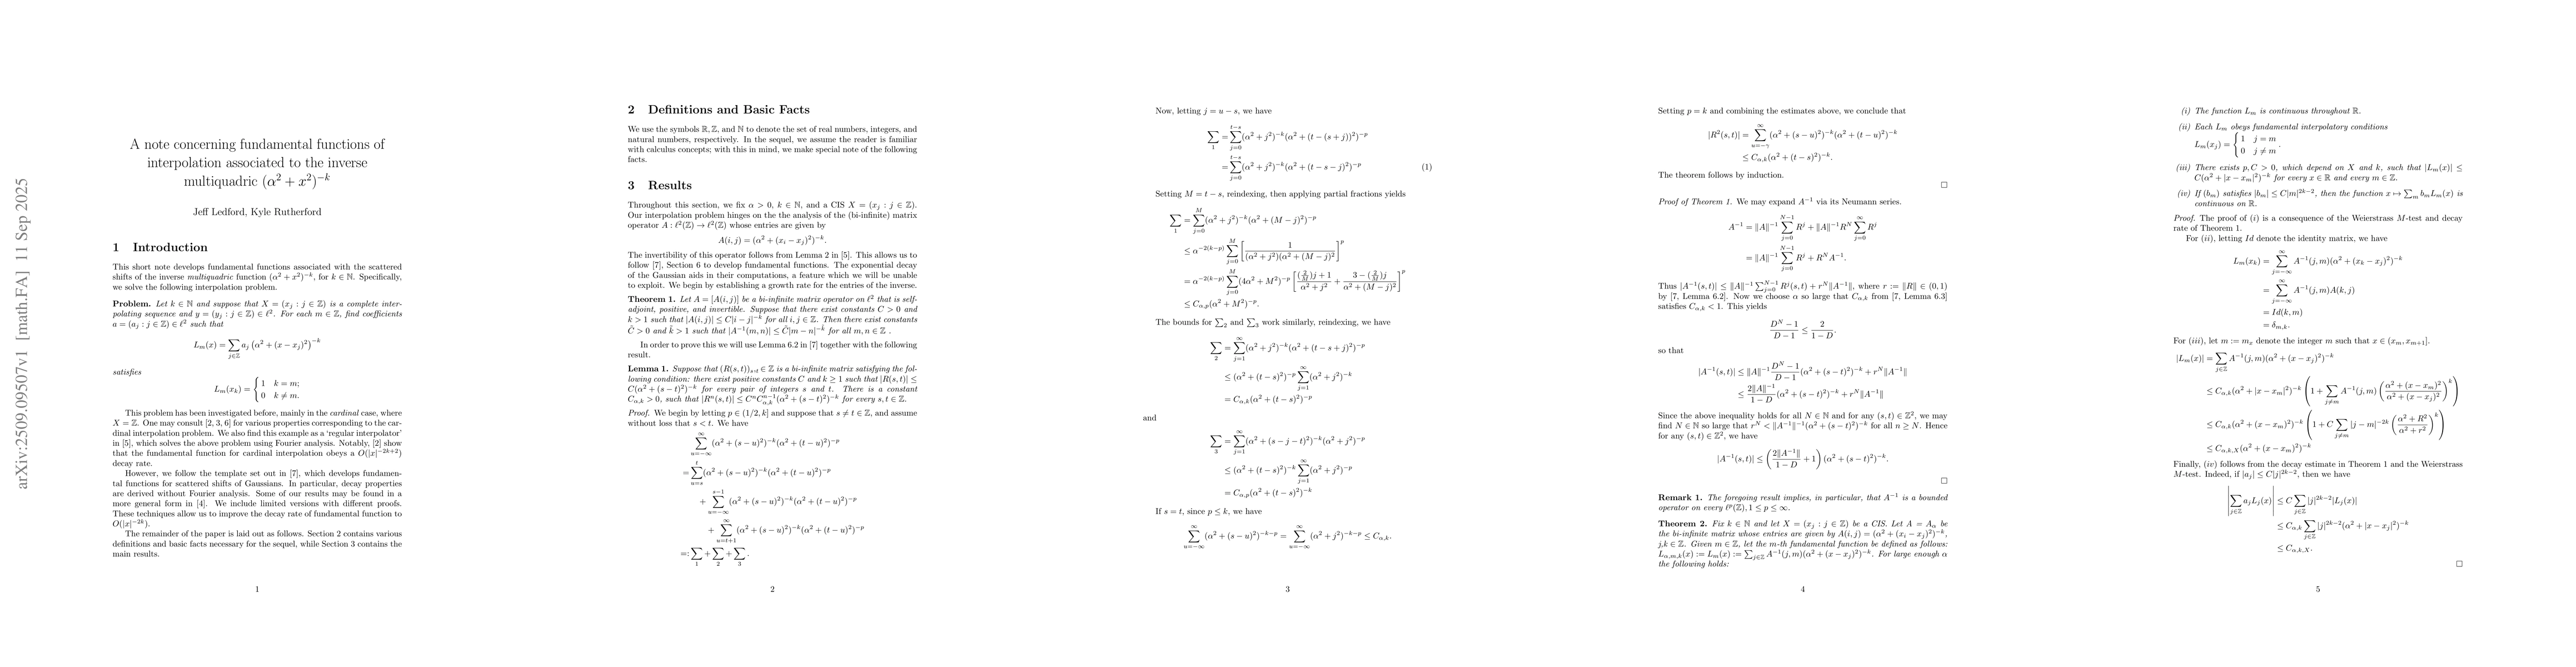 arXiv:2509.09507v1 [math.FA] 11 Sep 2025
A note concerning fundamental functions of
interpolation associated to the inverse
multiquadric (α² + x²)⁻ᵏ
Jeff Ledford, Kyle Rutherford
1 Introduction
This short note develops fundamental functions associated with the scattered
shifts of the inverse multiquadric function (α² + x²)⁻ᵏ, for k ∈ ℕ. Specifically,
we solve the following interpolation problem.
Problem. Let k ∈ ℕ and suppose that X = (x_j : j ∈ ℤ) is a complete inter-
polating sequence and y = (y_j : j ∈ ℤ) ∈ ℓ². For each m ∈ ℤ, find coefficients
a = (a_j : j ∈ ℤ) ∈ ℓ² such that
L_m(x) = ∑_{j∈ℤ} a_j (α² + (x − x_j)²)^{−k}
satisfies
L_m(x_k) = { 1 k = m; 0 k ≠ m.
This problem has been investigated before, mainly in the cardinal case, where
X = ℤ. One may consult [2, 3, 6] for various properties corresponding to the car-
dinal interpolation problem. We also find this example as a ‘regular interpolator’
in [5], which solves the above problem using Fourier analysis. Notably, [2] show
that the fundamental function for cardinal interpolation obeys a O(|x|^{−2k+2})
decay rate.
However, we follow the template set out in [7], which develops fundamen-
tal functions for scattered shifts of Gaussians. In particular, decay properties
are derived without Fourier analysis. Some of our results may be found in a
more general form in [4]. We include limited versions with different proofs.
These techniques allow us to improve the decay rate of fundamental function to
O(|x|^{−2k}).
The remainder of the paper is laid out as follows. Section 2 contains various
definitions and basic facts necessary for the sequel, while Section 3 contains the
main results.
1
2 Definitions and Basic Facts
We use the symbols ℝ, ℤ, and ℕ to denote the set of real numbers, integers, and
natural numbers, respectively. In the sequel, we assume the reader is familiar
with calculus concepts; with this in mind, we make special note of the following
facts.
3 Results
Throughout this section, we fix α > 0, k ∈ ℕ, and a CIS X = (x_j : j ∈ ℤ).
Our interpolation problem hinges on the the analysis of the (bi-infinite) matrix
operator A : ℓ²(ℤ) → ℓ²(ℤ) whose entries are given by
A(i, j) = (α² + (x_i − x_j)²)^{−k}.
The invertibility of this operator follows from Lemma 2 in [5]. This allows us to
follow [7], Section 6 to develop fundamental functions. The exponential decay
of the Gaussian aids in their computations, a feature which we will be unable
to exploit. We begin by establishing a growth rate for the entries of the inverse.
Theorem 1. Let A = [A(i, j)] be a bi-infinite matrix operator on ℓ² that is self-
adjoint, positive, and invertible. Suppose that there exist constants C > 0 and
k > 1 such that |A(i, j)| ≤ C|i − j|^{−k} for all i, j ∈ ℤ. Then there exist constants
C̃ > 0 and k̃ > 1 such that |A^{−1}(m, n)| ≤ C̃|m − n|^{−k̃} for all m, n ∈ ℤ .
In order to prove this we will use Lemma 6.2 in [7] together with the following
result.
Lemma 1. Suppose that (R(s, t))_{s,t} ∈ ℤ is a bi-infinite matrix satisfying the fol-
lowing condition: there exist positive constants C and k ≥ 1 such that |R(s, t)| ≤
C(α² + (s − t)²)^{−k} for every pair of integers s and t. There is a constant
C_{α,k} > 0, such that |Rⁿ(s, t)| ≤ CⁿC_{α,k}^{n−1}(α² + (s − t)²)^{−k} for every s, t ∈ ℤ.
Proof. We begin by letting p ∈ (1/2, k] and suppose that s ≠ t ∈ ℤ, and assume
without loss that s < t. We have
∑_{u=−∞}^{∞} (α² + (s − u)²)^{−k}(α² + (t − u)²)^{−p}
= ∑_{u=s}^{t} (α² + (s − u)²)^{−k}(α² + (t − u)²)^{−p}
+ ∑_{u=−∞}^{s−1} (α² + (s − u)²)^{−k}(α² + (t − u)²)^{−p}
+ ∑_{u=t+1}^{∞} (α² + (s − u)²)^{−k}(α² + (t − u)²)^{−p}
=: ∑_1 + ∑_2 + ∑_3 .
2
Now, letting j = u − s, we have
∑_1 = ∑_{j=0}^{t−s} (α² + j²)^{−k}(α² + (t − (s + j))²)^{−p}
= ∑_{j=0}^{t−s} (α² + j²)^{−k}(α² + (t − s − j)²)^{−p} (1)
Setting M = t − s, reindexing, then applying partial fractions yields
∑_1 = ∑_{j=0}^{M} (α² + j²)^{−k}(α² + (M − j)²)^{−p}
≤ α^{−2(k−p)} ∑_{j=0}^{M} [ 1 / ((α² + j²)(α² + (M − j)²)) ]^p
= α^{−2(k−p)} ∑_{j=0}^{M} (4α² + M²)^{−p} [ ((2/M)j + 1)/(α² + j²) + (3 − (2/M)j)/(α² + (M − j)²) ]^p
≤ C_{α,p}(α² + M²)^{−p}.
The bounds for ∑_2 and ∑_3 work similarly, reindexing, we have
∑_2 = ∑_{j=1}^{∞} (α² + j²)^{−k}(α² + (t − s + j)²)^{−p}
≤ (α² + (t − s)²)^{−p} ∑_{j=1}^{∞} (α² + j²)^{−k}
= C_{α,k}(α² + (t − s)²)^{−p}
and
∑_3 = ∑_{j=1}^{∞} (α² + (s − j − t)²)^{−k}(α² + j²)^{−p}
≤ (α² + (t − s)²)^{−k} ∑_{j=1}^{∞} (α² + j²)^{−p}
= C_{α,p}(α² + (t − s)²)^{−k}
If s = t, since p ≤ k, we have
∑_{u=−∞}^{∞} (α² + (s − u)²)^{−k−p} = ∑_{u=−∞}^{∞} (α² + j²)^{−k−p} ≤ C_{α,k}.
3
Setting p = k and combining the estimates above, we conclude that
|R²(s, t)| = ∑_{u=−γ}^{∞} (α² + (s − u)²)^{−k}(α² + (t − u)²)^{−k}
≤ C_{α,k}(α² + (t − s)²)^{−k}.
The theorem follows by induction.
□
Proof of Theorem 1. We may expand A^{−1} via its Neumann series.
A^{−1} = ‖A‖^{−1} ∑_{j=0}^{N−1} R^j + ‖A‖^{−1}R^N ∑_{j=0}^{∞} R^j
= ‖A‖^{−1} ∑_{j=0}^{N−1} R^j + R^N A^{−1}.
Thus |A^{−1}(s, t)| ≤ ‖A‖^{−1} ∑_{j=0}^{N−1} R^j(s, t) + r^N‖A^{−1}‖, where r := ‖R‖ ∈ (0, 1)
by [7, Lemma 6.2]. Now we choose α so large that C_{α,k} from [7, Lemma 6.3]
satisfies C_{α,k} < 1. This yields
(D^N − 1)/(D − 1) ≤ 2/(1 − D),
so that
|A^{−1}(s, t)| ≤ ‖A‖^{−1} (D^N − 1)/(D − 1) (α² + (s − t)²)^{−k} + r^N‖A^{−1}‖
≤ 2‖A‖^{−1}/(1 − D) (α² + (s − t)²)^{−k} + r^N‖A^{−1}‖
Since the above inequality holds for all N ∈ ℕ and for any (s, t) ∈ ℤ², we may
find N ∈ ℕ so large that r^N < ‖A^{−1}‖^{−1}(α² + (s − t)²)^{−k} for all n ≥ N. Hence
for any (s, t) ∈ ℤ², we have
|A^{−1}(s, t)| ≤ ( 2‖A^{−1}‖/(1 − D) + 1 ) (α² + (s − t)²)^{−k}.
□
Remark 1. The foregoing result implies, in particular, that A^{−1} is a bounded
operator on every ℓ^p(ℤ), 1 ≤ p ≤ ∞.
Theorem 2. Fix k ∈ ℕ and let X = (x_j : j ∈ ℤ) be a CIS. Let A = A_α be
the bi-infinite matrix whose entries are given by A(i, j) = (α² + (x_i − x_j)²)^{−k},
j,k ∈ ℤ. Given m ∈ ℤ, let the m-th fundamental function be defined as follows:
L_{α,m,k}(x) := L_m(x) := ∑_{j∈ℤ} A^{−1}(j, m)(α² + (x − x_j)²)^{−k}. For large enough α
the following holds:
4
(i) The function L_m is continuous throughout ℝ.
(ii) Each L_m obeys fundamental interpolatory conditions
L_m(x_j) = { 1 j = m; 0 j ≠ m .
(iii) There exists p, C > 0, which depend on X and k, such that |L_m(x)| ≤
C(α² + |x − x_m|²)^{−k} for every x ∈ ℝ and every m ∈ ℤ.
(iv) If (b_m) satisfies |b_m| ≤ C|m|^{2k−2}, then the function x ↦ ∑_m b_m L_m(x) is
continuous on ℝ.
Proof. The proof of (i) is a consequence of the Weierstrass M-test and decay
rate of Theorem 1.
For (ii), letting Id denote the identity matrix, we have
L_m(x_k) = ∑_{j=−∞}^{∞} A^{−1}(j, m)(α² + (x_k − x_j)²)^{−k}
= ∑_{j=−∞}^{∞} A^{−1}(j, m)A(k, j)
= Id(k, m)
= δ_{m,k}.
For (iii), let m := m_x denote the integer m such that x ∈ (x_m, x_{m+1}].
|L_m(x)| = ∑_{j∈ℤ} A^{−1}(j, m)(α² + (x − x_j)²)^{−k}
≤ C_{α,k}(α² + |x − x_m|²)^{−k} ( 1 + ∑_{j≠m} A^{−1}(j, m) ( (α² + (x − x_m)²)/(α² + (x − x_j)²) )^k )
≤ C_{α,k}(α² + (x − x_m)²)^{−k} ( 1 + C ∑_{j≠m} |j − m|^{−2k} ( (α² + R²)/(α² + r²) )^k )
≤ C_{α,k,X}(α² + (x − x_m)²)^{−k}
Finally, (iv) follows from the decay estimate in Theorem 1 and the Weierstrass
M-test. Indeed, if |a_j| ≤ C|j|^{2k−2}, then we have
|∑_{j∈ℤ} a_j L_j(x)| ≤ C ∑_{j∈ℤ} |j|^{2k−2}|L_j(x)|
≤ C_{α,k} ∑_{j∈ℤ} |j|^{2k−2}(α² + |x − x_j|²)^{−k}
≤ C_{α,k,X}.
□
5